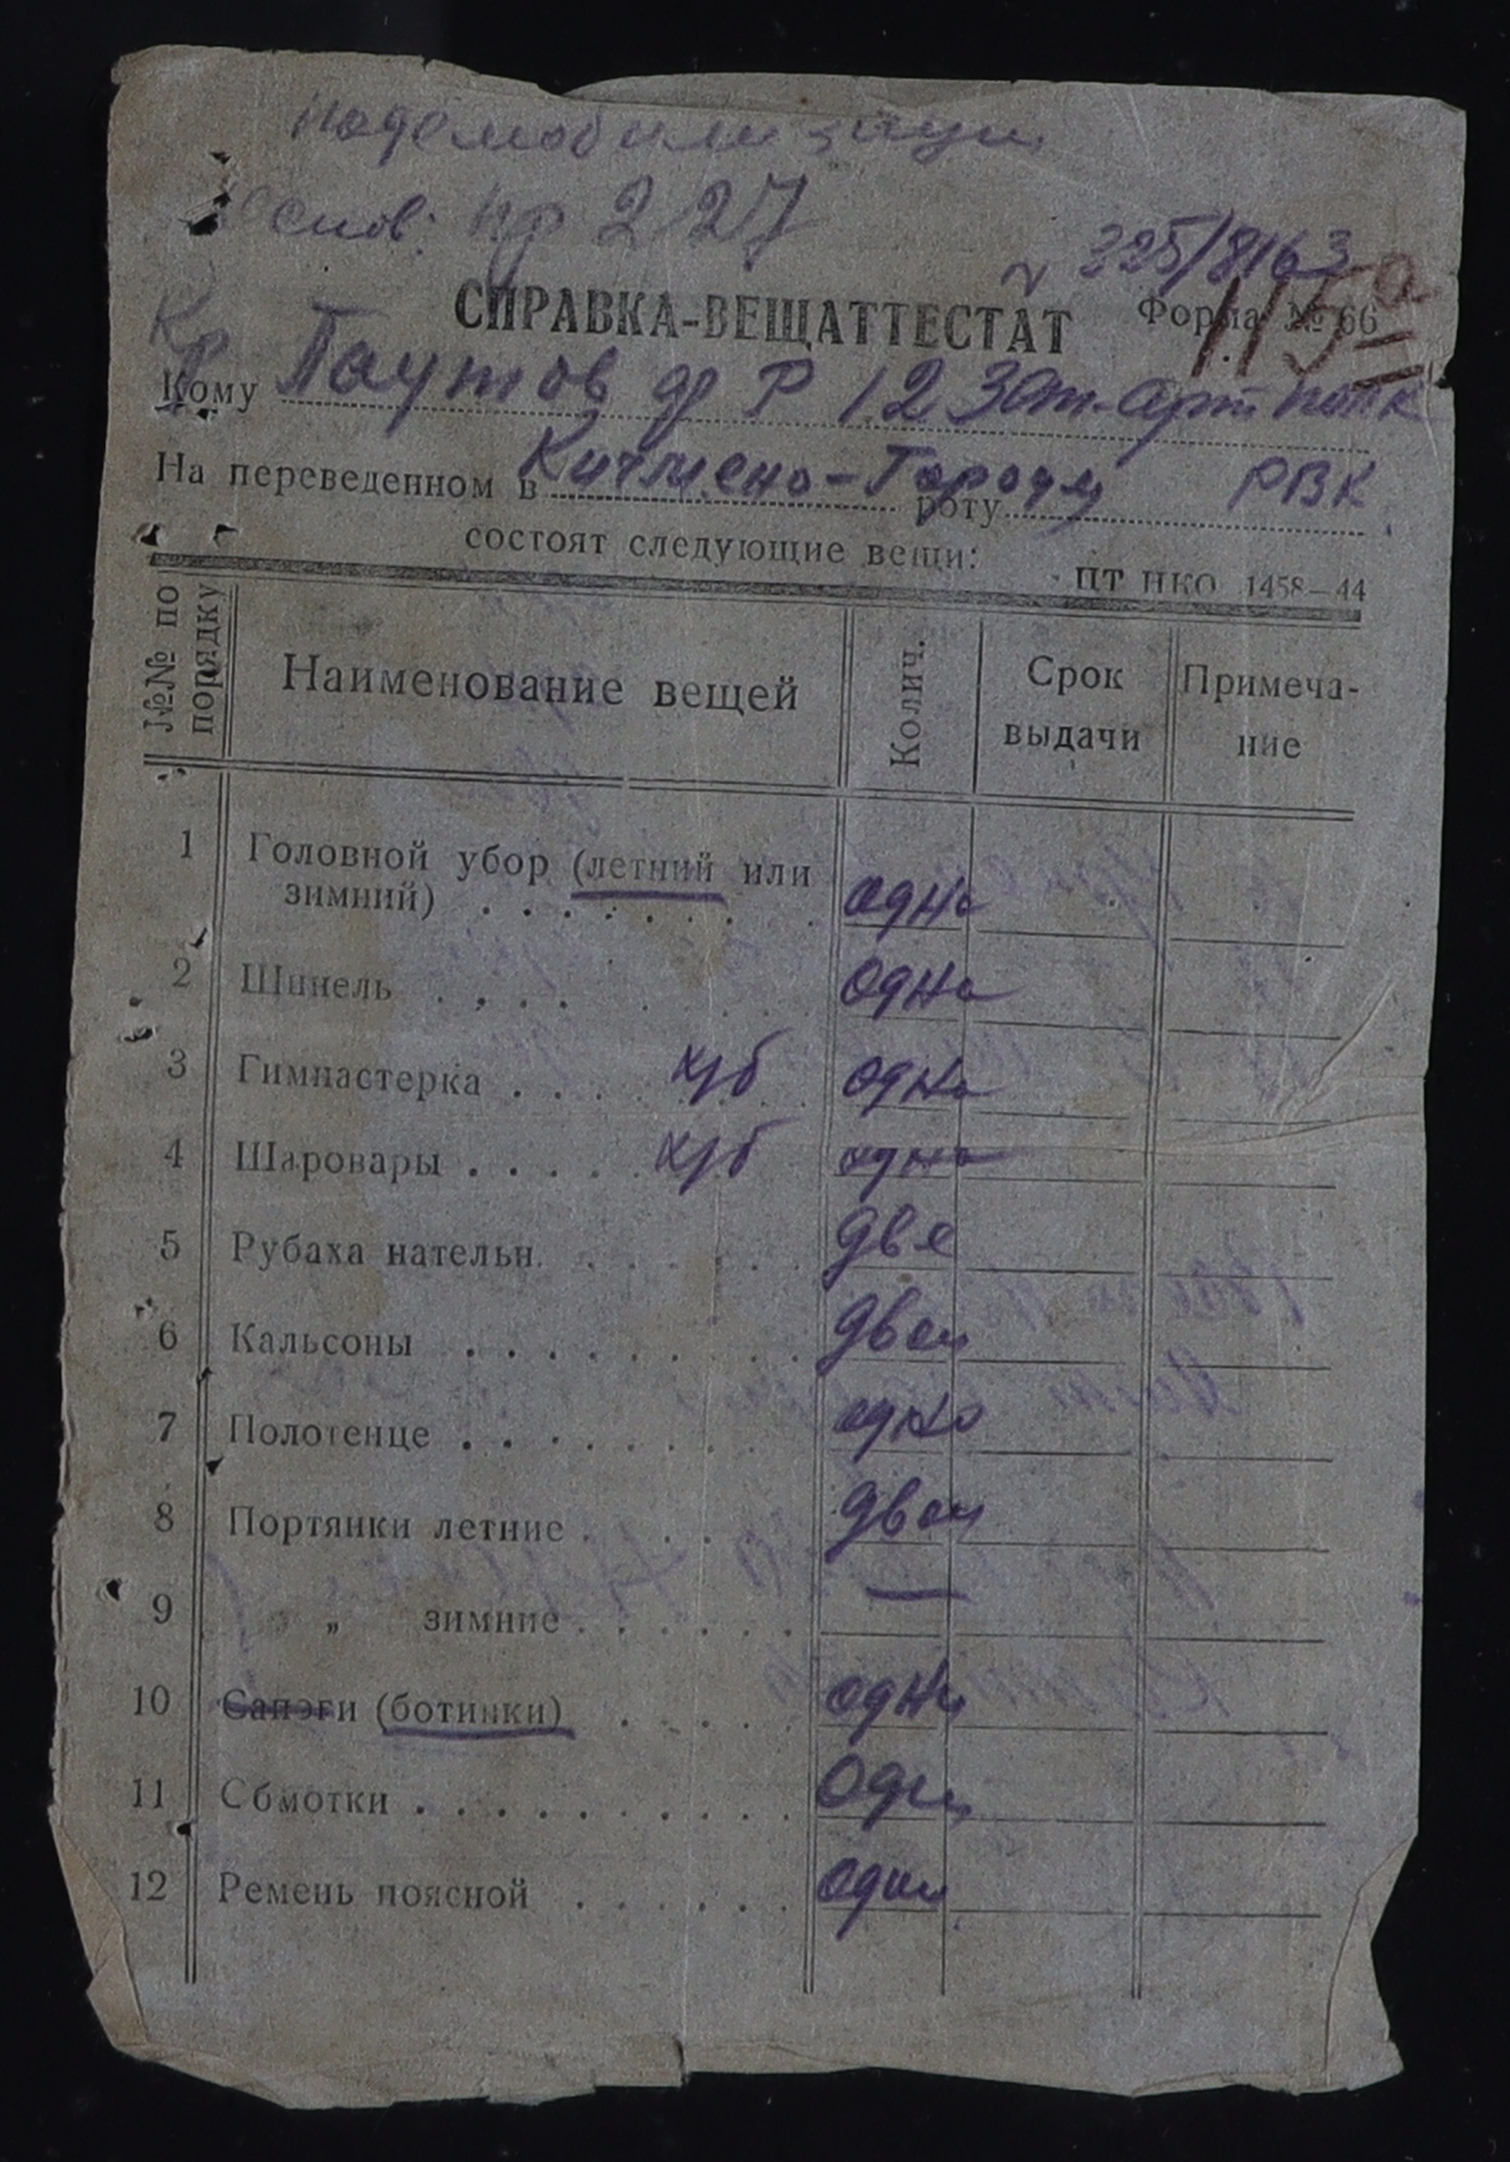 подемобилизации
снов: пр 227
№ 225/8163
115а
СПРАВКА-ВЕЩАТТЕСТАТ Форма № 66
Кр
Кому Паутов др Р 12 Зап. арт полк
На переведенном в Кичмено-Городц роту РВК
состоят следующие вещи:
ПТ НКО 1458—44
№№ по порядку Наименование вещей Колич. Срок выдачи Примеча-ние
1 Головной убор (летний или
зимний) . . . . . . . одно
2 Шинель . . . . одна
3 Гимнастерка . . . . х/б одна
4 Шаровары . . . . . х/б одна
5 Рубаха нательн. . . . . . две
6 Кальсоны . . . . . . . . двои
7 Полотенце . . . . . . . одно
8 Портянки летние . . . . двои
9 „ зимние . . . . . . —
10 Сапоги (ботинки) . . . . . одни
11 Сбмотки . . . . . . . . . . Одни
12 Ремень поясной . . . . . . один